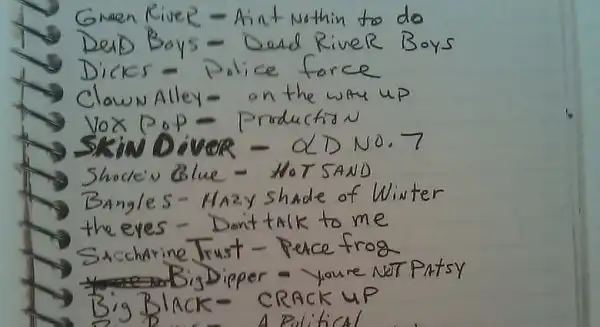 Green River - Aint Nothin to do
DeaD Boys - Dead RiveR Boys
Dicks - Police force
Clown Alley - on the way up
Vox Pop - Production
SKIN DiveR - OLD NO. 7
Shock'n Blue - HOT SAND
Bangles - HAzy Shade of Winter
the eyes - Dont tALK to me
SAccharine Trust - Peace frog
Big Dipper - youre NoT PAtsy
Big BlACK - CRACK UP
A Political